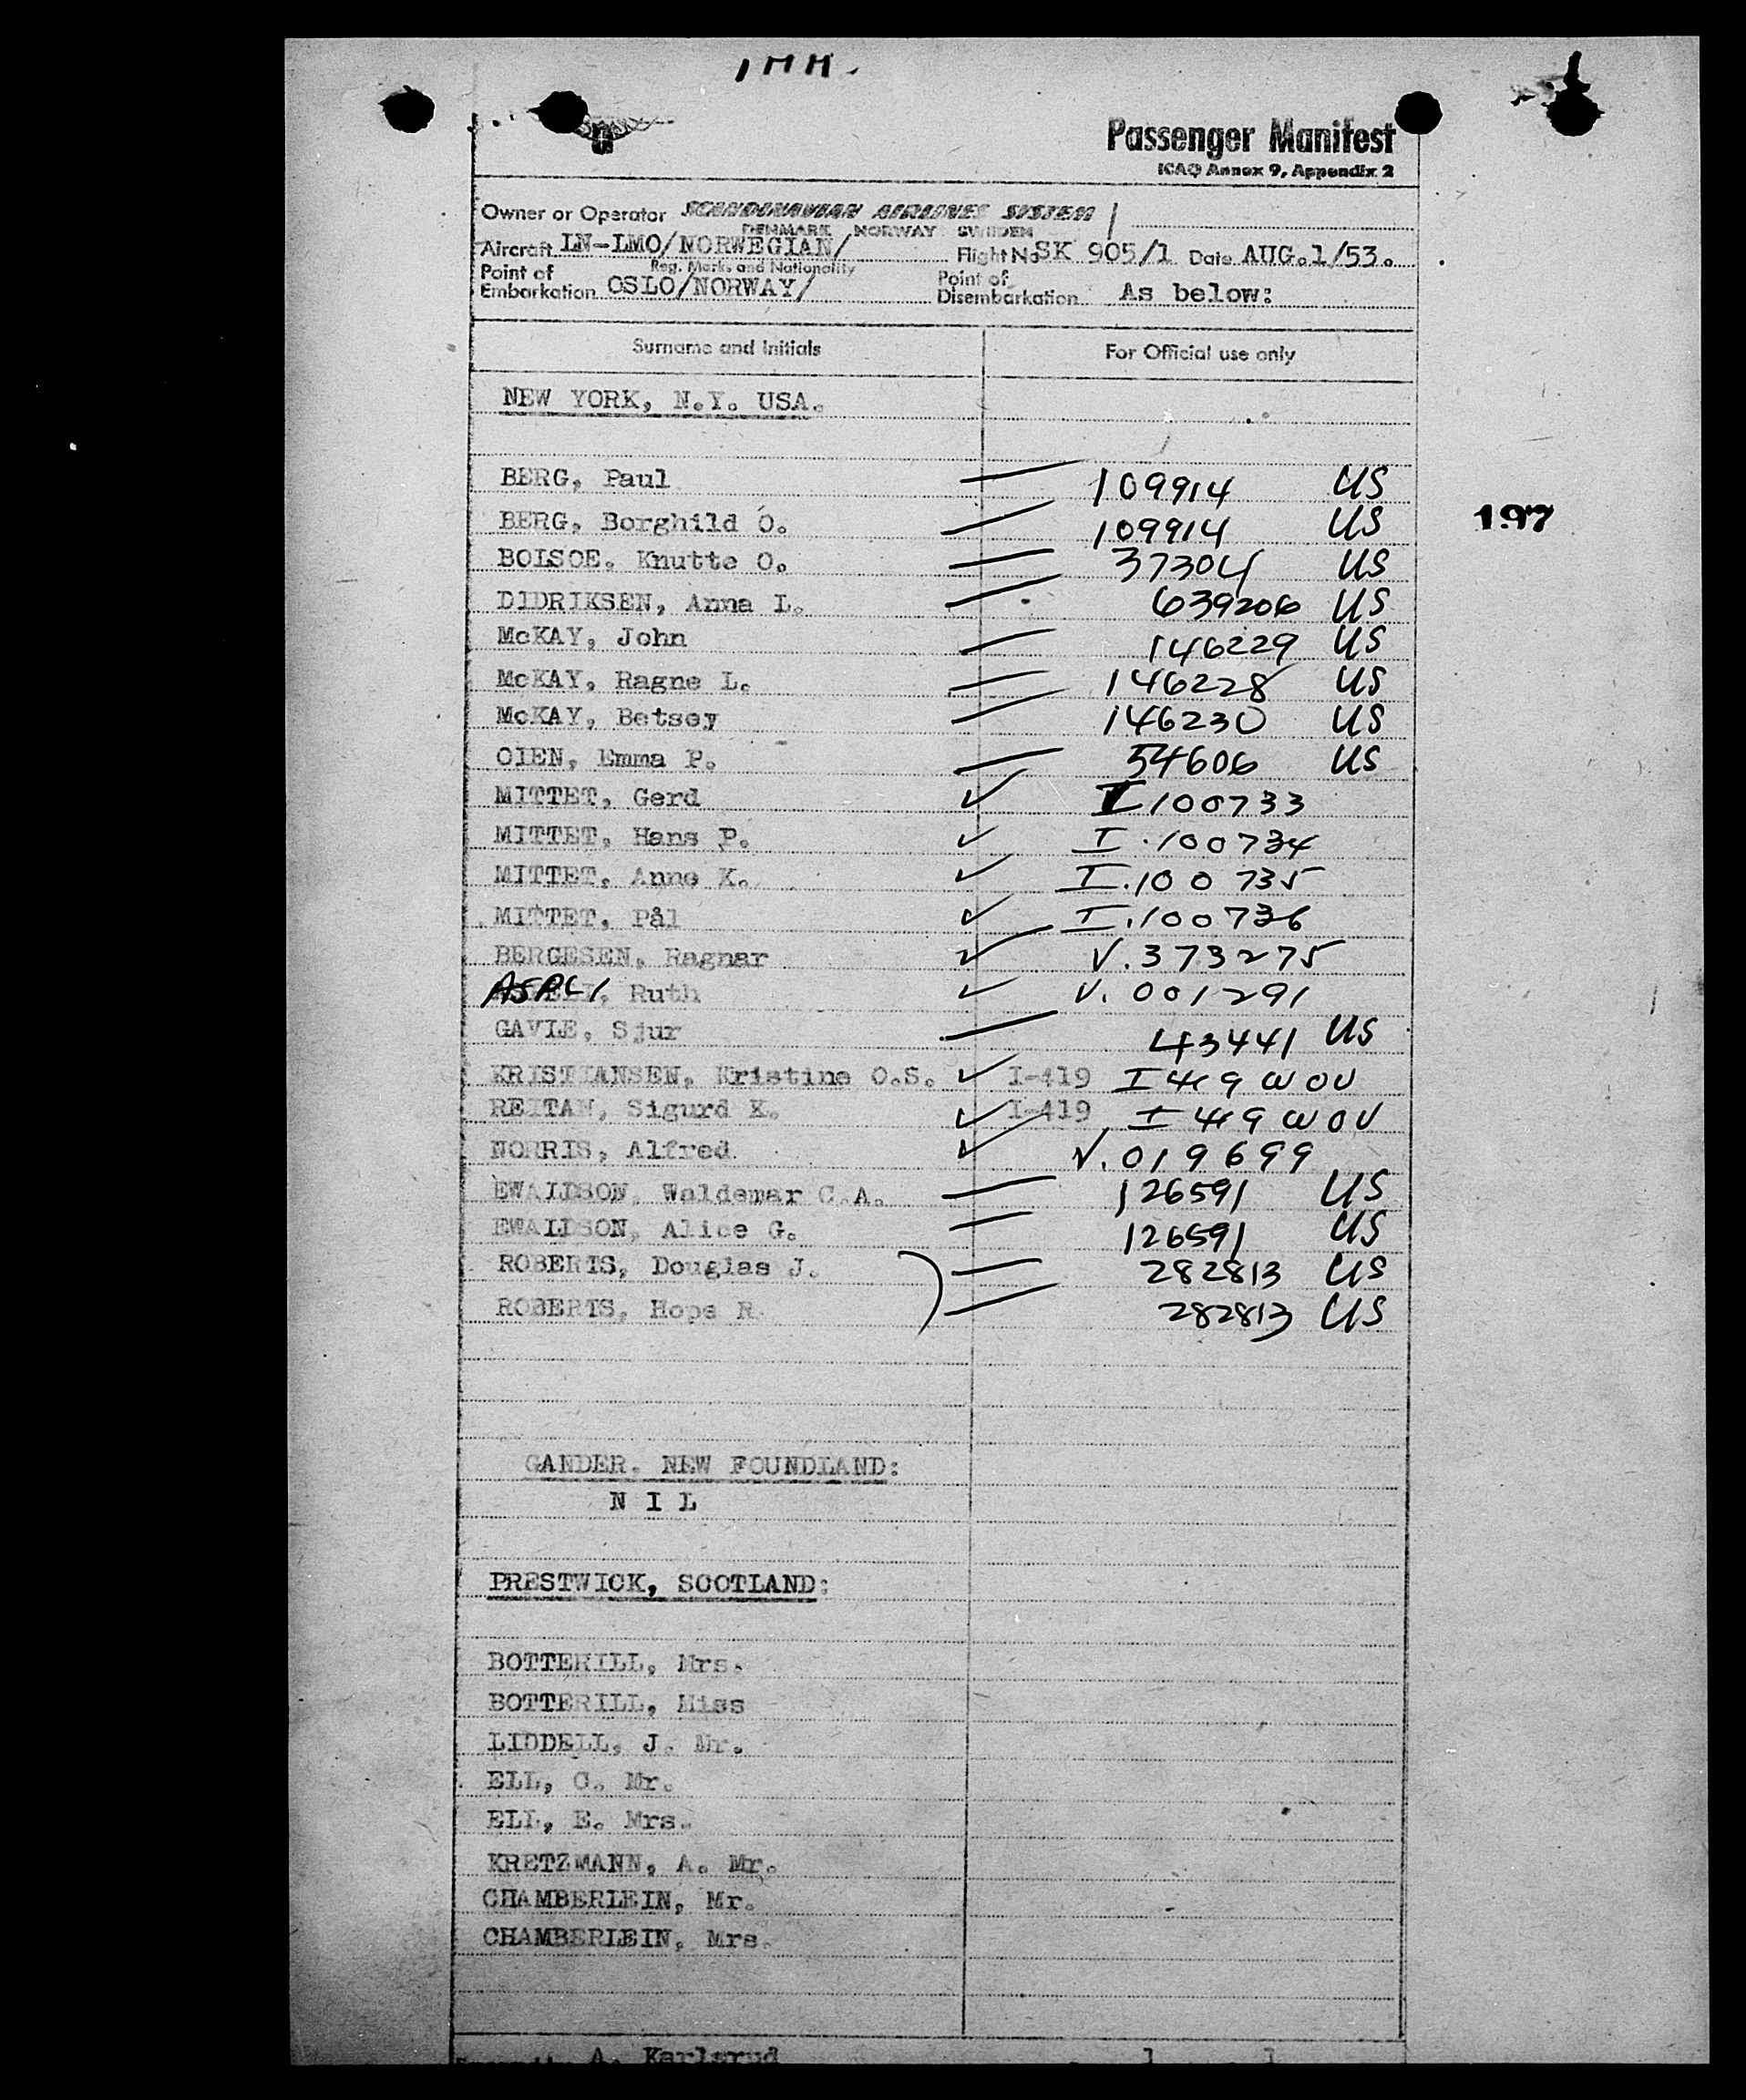 1 M M.
Passenger Manifest
ICAO Annex 9, Appendix 2
Owner or Operator SCANDINAVIAN AIRLINES SYSTEM
DENMARK NORWAY SWEDEN
Aircraft LN-LMO/NORWEGIAN/ Flight No SK 905/1 Date AUG.1/53.
Reg. Mark. and Nationality
Point of Embarkation OSLO/NORWAY/ Point of Disembarkation As below:
Surname and Initials For Official use only
NEW YORK, N.Y. USA.
BERG, Paul 109914 US
BERG, Borghild O. 109914 US
197
BOISOE, Knutte O. 37304 US
DIDRIKSEN, Anna L. 639206 US
McKAY, John 146229 US
McKAY, Ragne L. 146228 US
McKAY, Betsey 146230 US
OIEN, Emma P. 54606 US
MITTET, Gerd ✓ I 100733
MITTET, Hans P. ✓ I.100734
MITTET, Anne K. ✓ I.100735
MITTET, Pål ✓ I.100736
BERGESEN, Ragnar ✓ V.373275
Ruth ✓ V.001291
GAVLE, Sjur 43441 US
KRISTIANSEN, Kristine O.S. ✓ I-419 I 419 WOV
REITAN, Sigurd K. ✓ I-419 I 419 WOV
NORRIS, Alfred ✓ V.019699
EWALDSON, Waldemar C.A. 126591 US
EWALDSON, Alice G. 126591 US
ROBERTS, Douglas J. 282813 US
ROBERTS, Hope R. 282813 US
GANDER. NEW FOUNDLAND:
N I L
PRESTWICK, SCOTLAND:
BOTTERILL, Mrs.
BOTTERILL, Miss
LIDDELL, J. Mr.
ELL, C. Mr.
ELL, E. Mrs.
KRETZMANN, A. Mr.
CHAMBERLEIN, Mr.
CHAMBERLEIN, Mrs.
A. Karlsrud